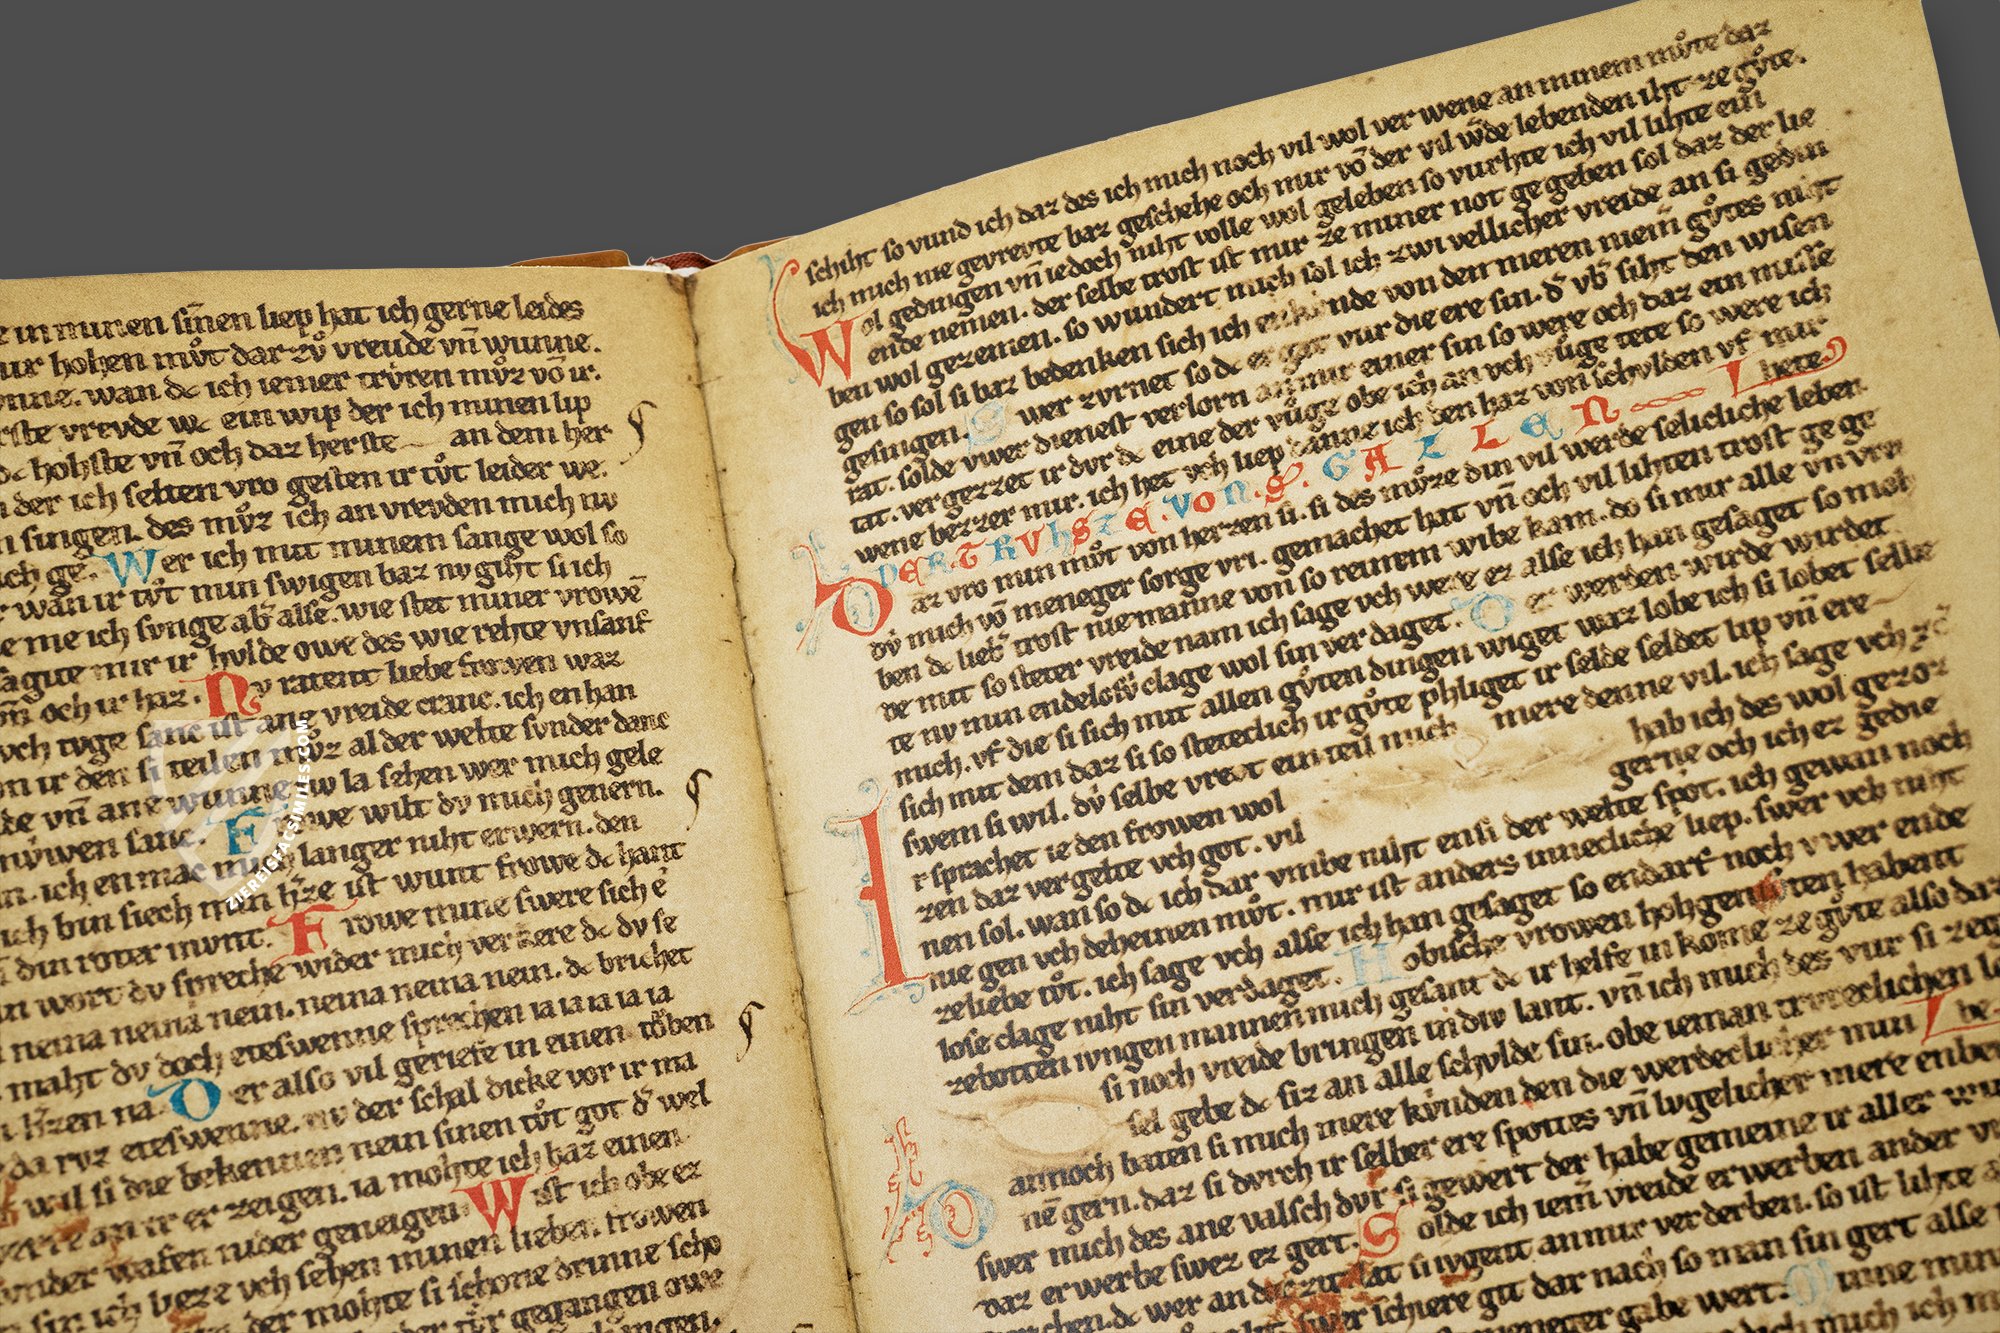 e in minen sinen liep hat ich gerne leides
ur hohen mvͦt dar zvͦ vreude vn̄ wunne.
nne. wan dc ich iemer trvren mvͦz vō ir.
rste vreyde wc ein wip der ich minen lip
dc hohste vn̄ och daz herste an dem her
der ich selten vro gesten ir tvͦt leider we.
n singen. des mvͦz ich an vreyden mich nv
ich ge. Wer ich mit minem sange wol so
r wan ir tvͦt min swigen baz nv giht si ich
e me ich svnge ab alse. wie stet miner vrowē
sagite mir ir hvlde owe des wie rehte vnsanf
vn̄ och ir haz. Nv ratent liebe frowen waz
vch tvge sanc ist ane vreide cranc. ich en han
n ir den si teilen mvͦz al der welte svnder danc
de vn̄ ane wunne nv la sehen wer mich gele
nvwen sanc. Frowe wilt dv mich genern.
n. ich en mac mich langer niht erwern. den
ich bin siech min hze ist wunt frowe dc hant
din roter mvnt. Frowe mine swere sich e
n wort dv spreche wider mich verkere dc dv se
nema neina nein. neina neina nein. dc brichet
maht dv doch eteswenne sprechen ia ia ia ia ia ia
hzen na. Der also vil geriefe in einen tͦben
da rvz eteswenne. nv der schal dicke vor ir ma
wil si die bekennen nein sinen tvͦt got d wel
an ir er zeigen. ia mohte ich baz einen
vnder wafen nider geneigen. Wist ich obe ez
sin ich lieze vch sehen minen lieben. frowen
der mohte si schone drinne scho
gegangen owe
schiht so vund ich daz des ich mich noch vil wol ver wene an minem mvͦte daz
ich mich nie gevrevte baz geschehe och mir vō der vil wde lebenden iht ze gvͦte.
Wol gedingen vn̄ iedoch niht volle wol geleben so vurhte ich vil lihte ein
ende nemen. der selbe trost ist mir ze miner not gegeben sol daz der lie
ben wol gezemen. so wundert mich sol ich zwi vellicher vreide an si gedin
gen so sol si baz bedenken sich ich enkunde von den meren niem̄ gvͦtes niht
gesingen. Swer zvrnet so dc er gat vur die ere sin. d vb siht den wisen
rat. solde vwer dienest verlorn an mir einer sin so were och daz ein misse
tat. vergezzet ir dvr dc eine der vuͦge obe ich an vch vuͦge tete so were ich
wene bezzer mir. ich het vch liep danne ich den haz von schvlden vf mir
DER TRVHSZE. VON. S. GALLEN Lhete
Daz vro min mvͦt von herzen si. si des mvͦze din vil werde selicliche leben
dv mich vō meneger sorge vri. gemachet hat vn̄ och vil lihten trost ge ge
ben dc lieb trost niemanne von so reinem wibe kam. do si mir alle vn vrei
de mit so steter vreide nam ich sage vch were ez alse ich han gesaget so moh
te nv min endelosv clage wol sin verdaget. Der werden wirde wirdet
mich. vf die si sich mit allen gvͦten dingen wiget waz lobe ich si lobet selbe
sich mit dem daz si so steteclich ir gvͦte phliget ir selde seldet lip vn̄ ere
swem si wil. dv selbe vrevt ein teil mich mere denne vil. ich sage vch
Ir sprachet ie den frowen wol hab ich des wol gezoz
zen daz vergelte vch got. vil gerne och ich ez gedie
nen sol. wan so dc ich dar vmbe niht ensi der welte spot. ich gewan noch
nie gen vch deheinen mvͦt. mir ist anders innecliche liep. swer vch niht
ze liebe tvͦt. ich sage vch alse ich han gesaget so endarf noch vwer ende
lose clage niht sin verdaget. Hobische vrowen hohgemͦten habent
zebotten ivngen mannen mich gesant dc ir helfe in kome ze gvͦte also daz
si noch vreide bringen in div lant. vn̄ ich mich des vur si zeg
sel gebe dc siz an alle schvlde sin. obe ieman trvreclichen l
Dannoch baten si mich mere kvnden den die werdeclicher min Lbe
nē gern. daz si dvrch ir selber ere spottes vn̄ lvgelicher mere enbe
swer mich des ane valsch dvr si gewert der habe gemeine ir aller wu
daz er werbe swez ez gert. Solde ich iem̄ vreide erwerben ander v
sprechen. dc wer an si ivgent an mir verderben. so ist lihte a
swer ichiere git dar nach so man sin gert alse
weneger gabe wert. Minne min
ZIEREISFACSIMILES.COM